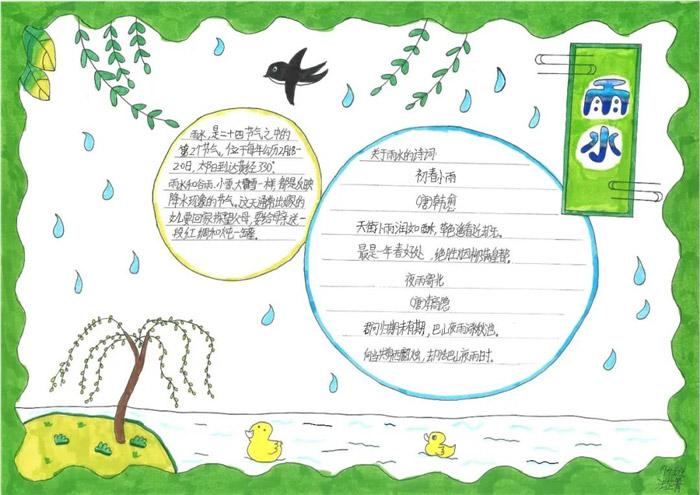 雨水
雨水，是二十四节气之中的
第2个节气。位于每年公历2月18-
20日，太阳到达黄经330°
雨水和谷雨、小雪、大雪一样，都是反映
降水现象的节气。这天通常出嫁的
女儿要回家拜望父母，要给母亲送一
段红绸和炖一罐
关于雨水的诗词
初春小雨
(唐)韩愈
天街小雨润如酥，草色遥看近却无。
最是一年春好处，绝胜烟柳满皇都。
夜雨寄北
(唐)
君问归期未有期，巴山夜雨涨秋池。
何当共剪西窗烛，却话巴山夜雨时。